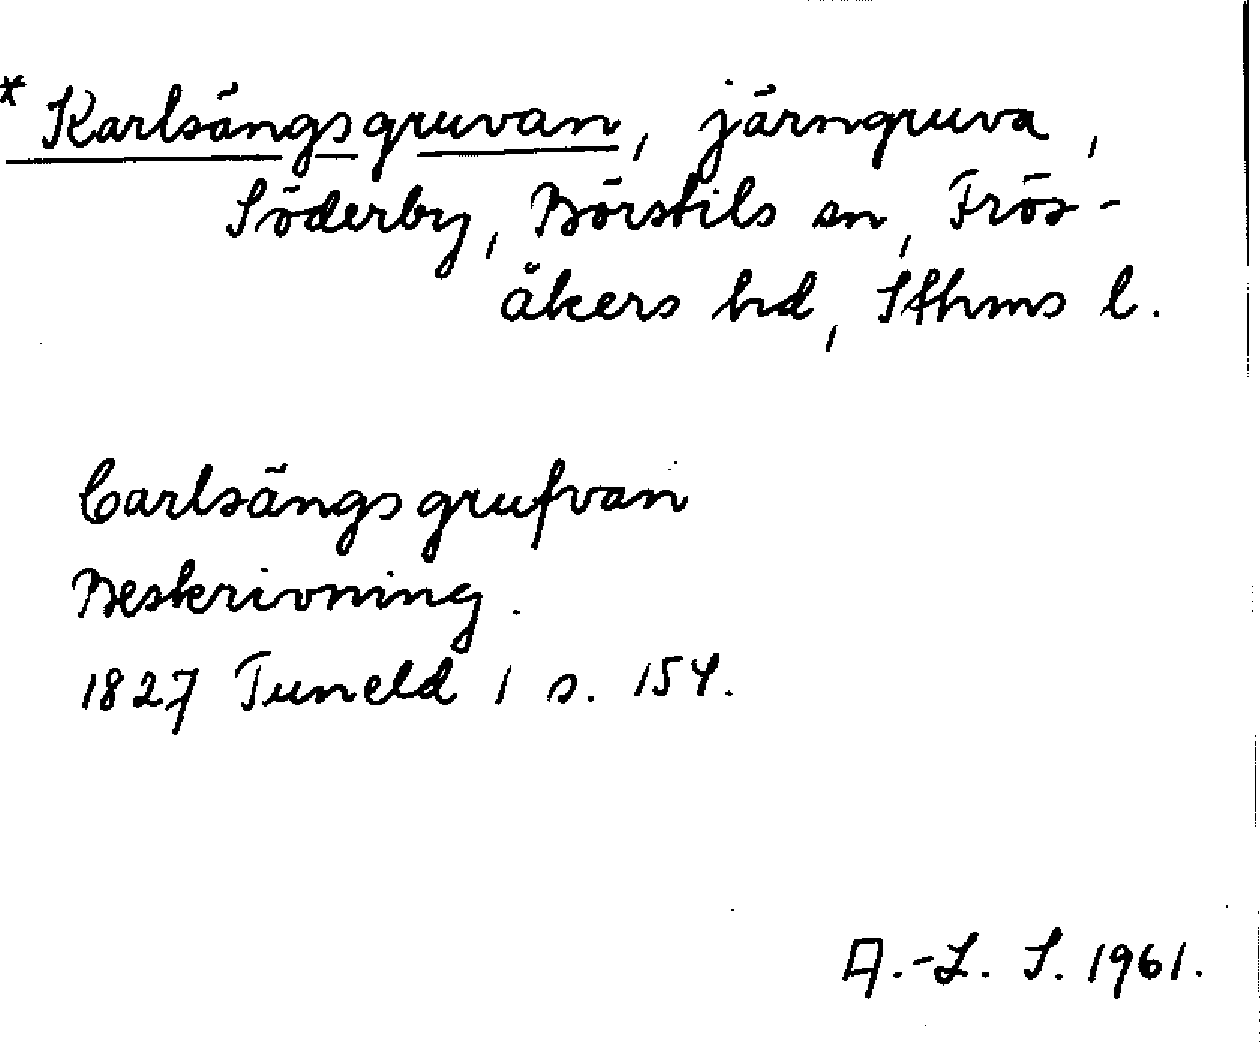 * Karlsängsgruvan, järngruva,
Söderby, Börstils sn, Frös-
åkers hd, Sthms l.
Carlsängsgrufvan
Beskrivning.
1827 Tuneld 1 s. 154.
A.-L. S. 1961.